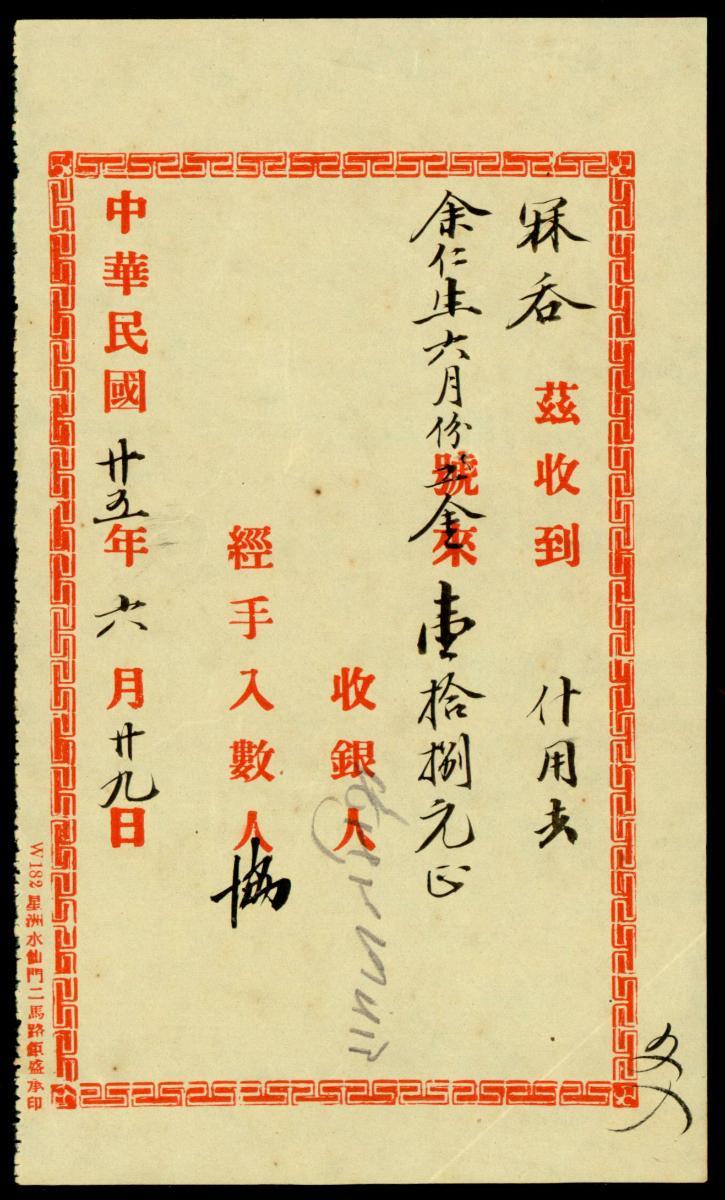 茲收到 什用去
余仁生六月份工金壹拾捌元正
號來
收銀人
經手入數人 協
中華民國廿五年六月廿九日
W182 星洲水仙門二馬路鉅盛承印